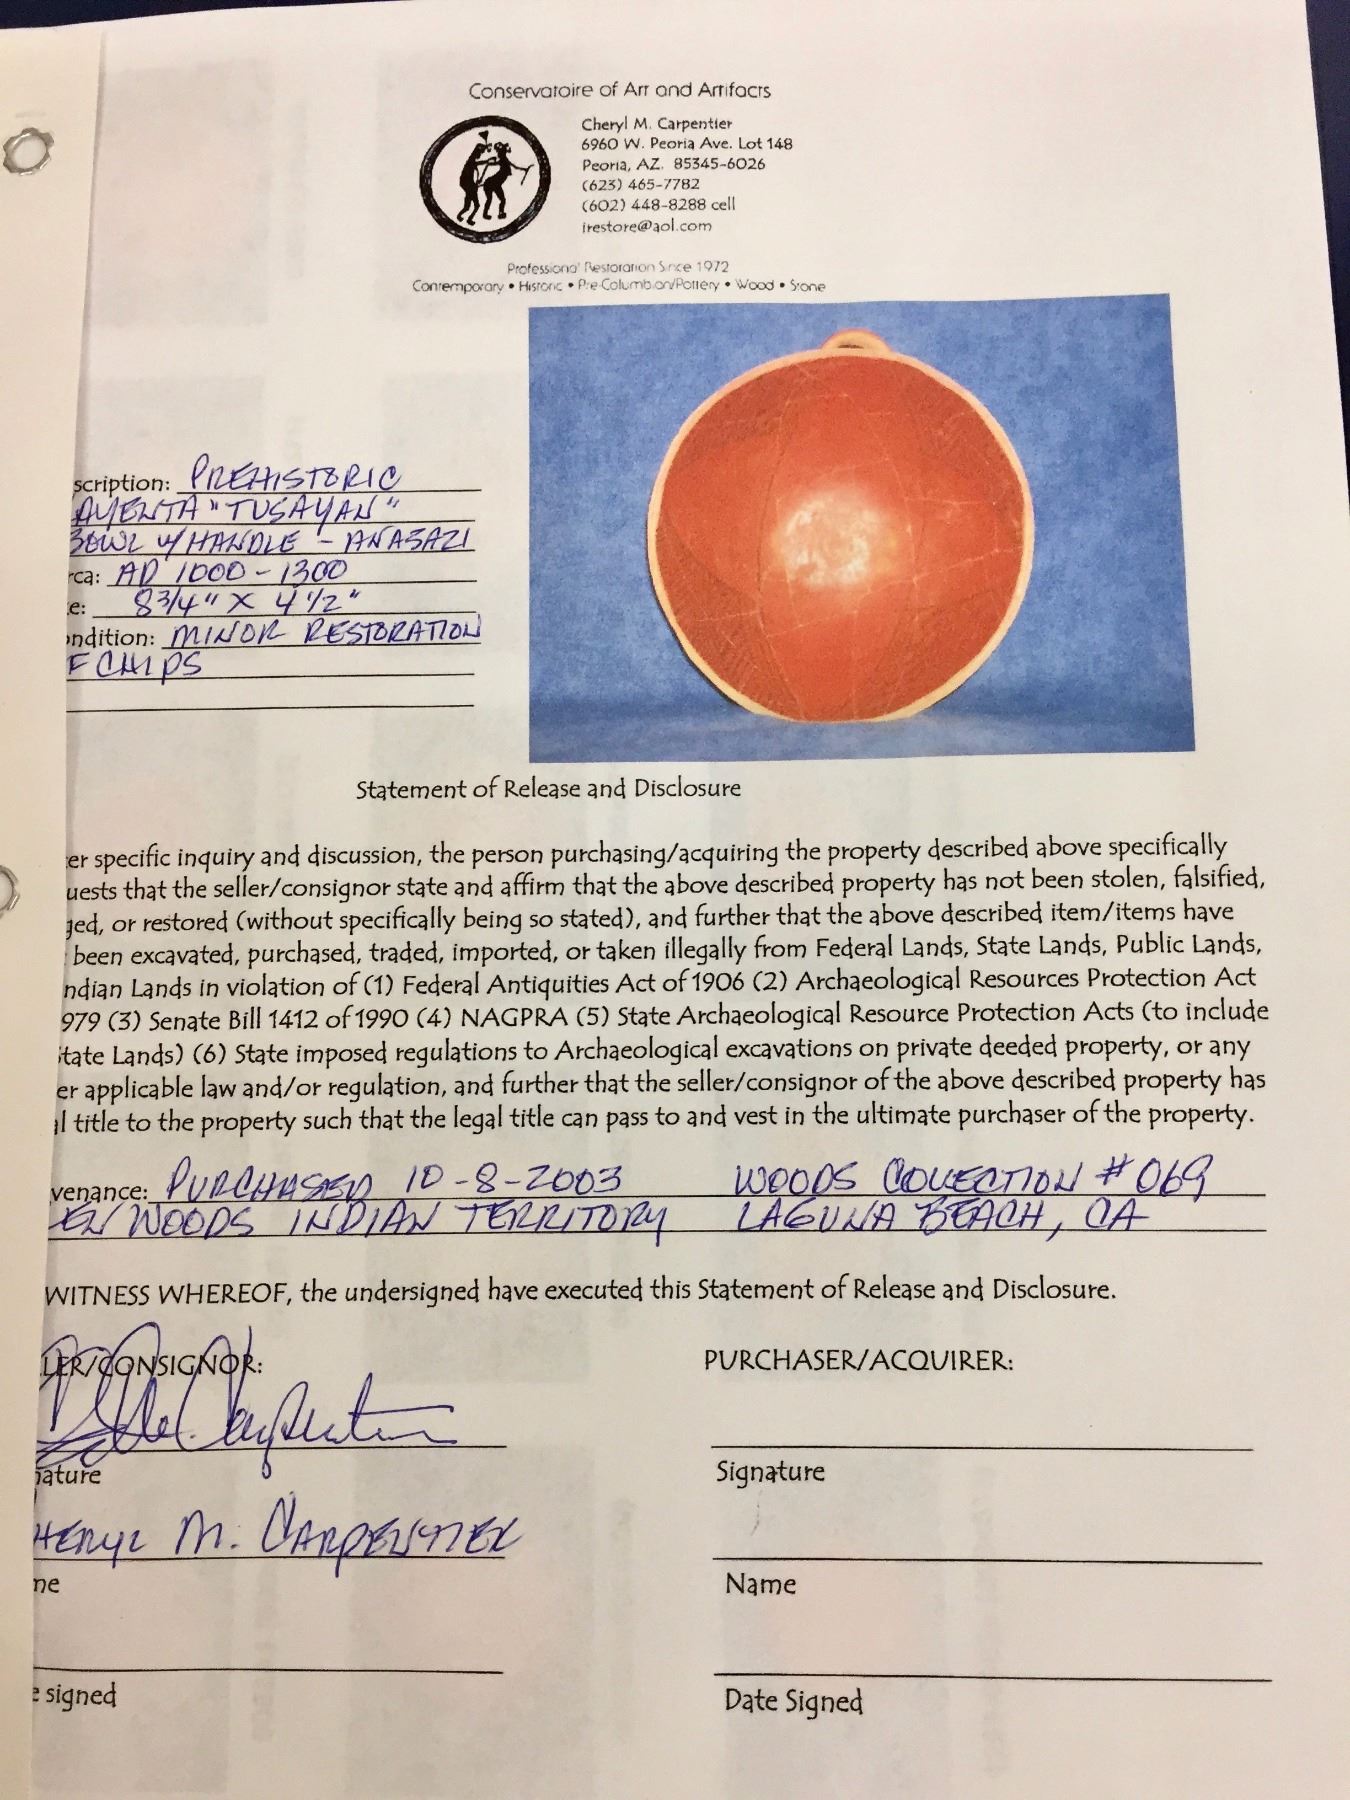 Conservatoire of Art and Artifacts
Cheryl M. Carpentier
6960 W. Peoria Ave. Lot 148
Peoria, AZ. 85345-6026
(623) 465-7782
(602) 448-8288 cell
irestore@aol.com
Professional Restoration Since 1972
Contemporary • Historic • Pre-Columbian/Pottery • Wood • Stone
scription: PREHISTORIC
AYENTA "TUSAYAN"
BOWL W/HANDLE - ANASAZI
rca: AD 1000-1300
e: 8 3/4" X 4 1/2"
ondition: MINOR RESTORATION
F CHIPS
Statement of Release and Disclosure
er specific inquiry and discussion, the person purchasing/acquiring the property described above specifically
uests that the seller/consignor state and affirm that the above described property has not been stolen, falsified,
ged, or restored (without specifically being so stated), and further that the above described item/items have
been excavated, purchased, traded, imported, or taken illegally from Federal Lands, State Lands, Public Lands,
ndian Lands in violation of (1) Federal Antiquities Act of 1906 (2) Archaeological Resources Protection Act
979 (3) Senate Bill 1412 of 1990 (4) NAGPRA (5) State Archaeological Resource Protection Acts (to include
tate Lands) (6) State imposed regulations to Archaeological excavations on private deeded property, or any
er applicable law and/or regulation, and further that the seller/consignor of the above described property has
l title to the property such that the legal title can pass to and vest in the ultimate purchaser of the property.
venance: PURCHASED 10-8-2003 WOODS COLLECTION #069
EN WOODS INDIAN TERRITORY LAGUNA BEACH, CA
WITNESS WHEREOF, the undersigned have executed this Statement of Release and Disclosure.
LER/CONSIGNOR:
PURCHASER/ACQUIRER:
Carpentier
nature
Signature
HERYL M. CARPENTIER
me
Name
e signed
Date Signed